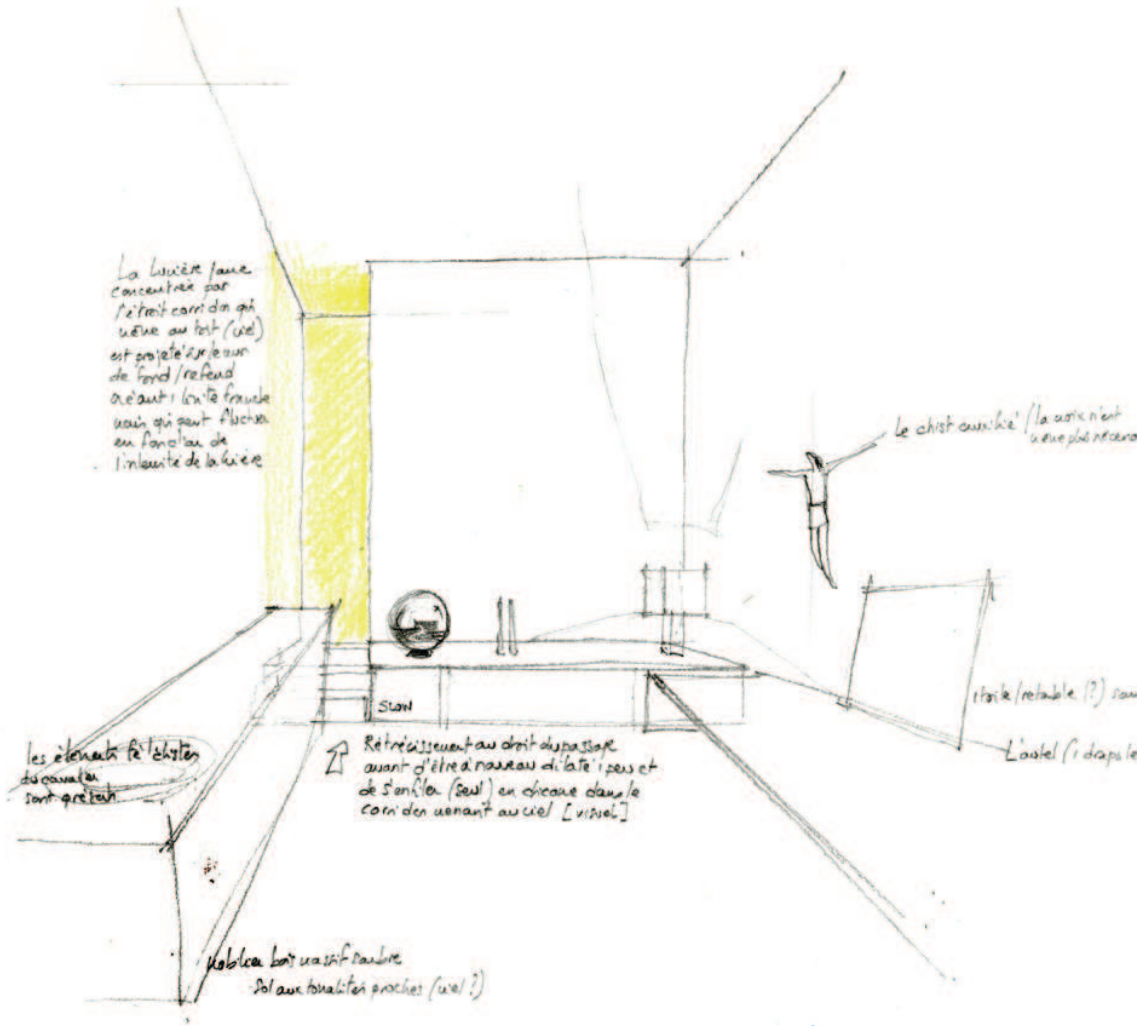 La lumière jaune
concentrée par
l'étroit corridor qui
mène au toit (ciel)
est projeté sur le mur
de fond/refend
créant 1 limite franche
mais qui peut fluctuer
en fonction de
l'intensité de la lumière
Le christ crucifié / la croix n'est
même plus
étoile/retable (?)
L'autel (1
SLOW
les éléments
du cavalier
sont présents
Rétrécissement au droit du passage
avant d'être à nouveau dilaté 1 peu et
de s'enfiler (seul) en chicane dans le
corridor menant au ciel [visuel]
Mobilier bois massif sombre
Sol aux tonalités proches (ciel ?)